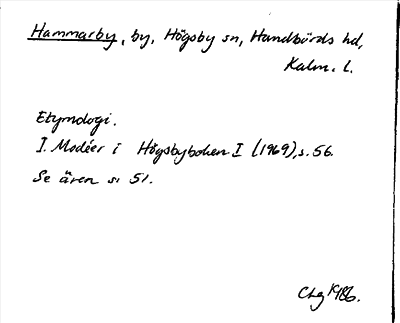 Hammarby, by, Högsby sn, Handbörds hd,
Kalm. l.
Etymologi.
I. Modéer i Högsbyboken I (1969), s. 56.
Se även s. 51.
1986.